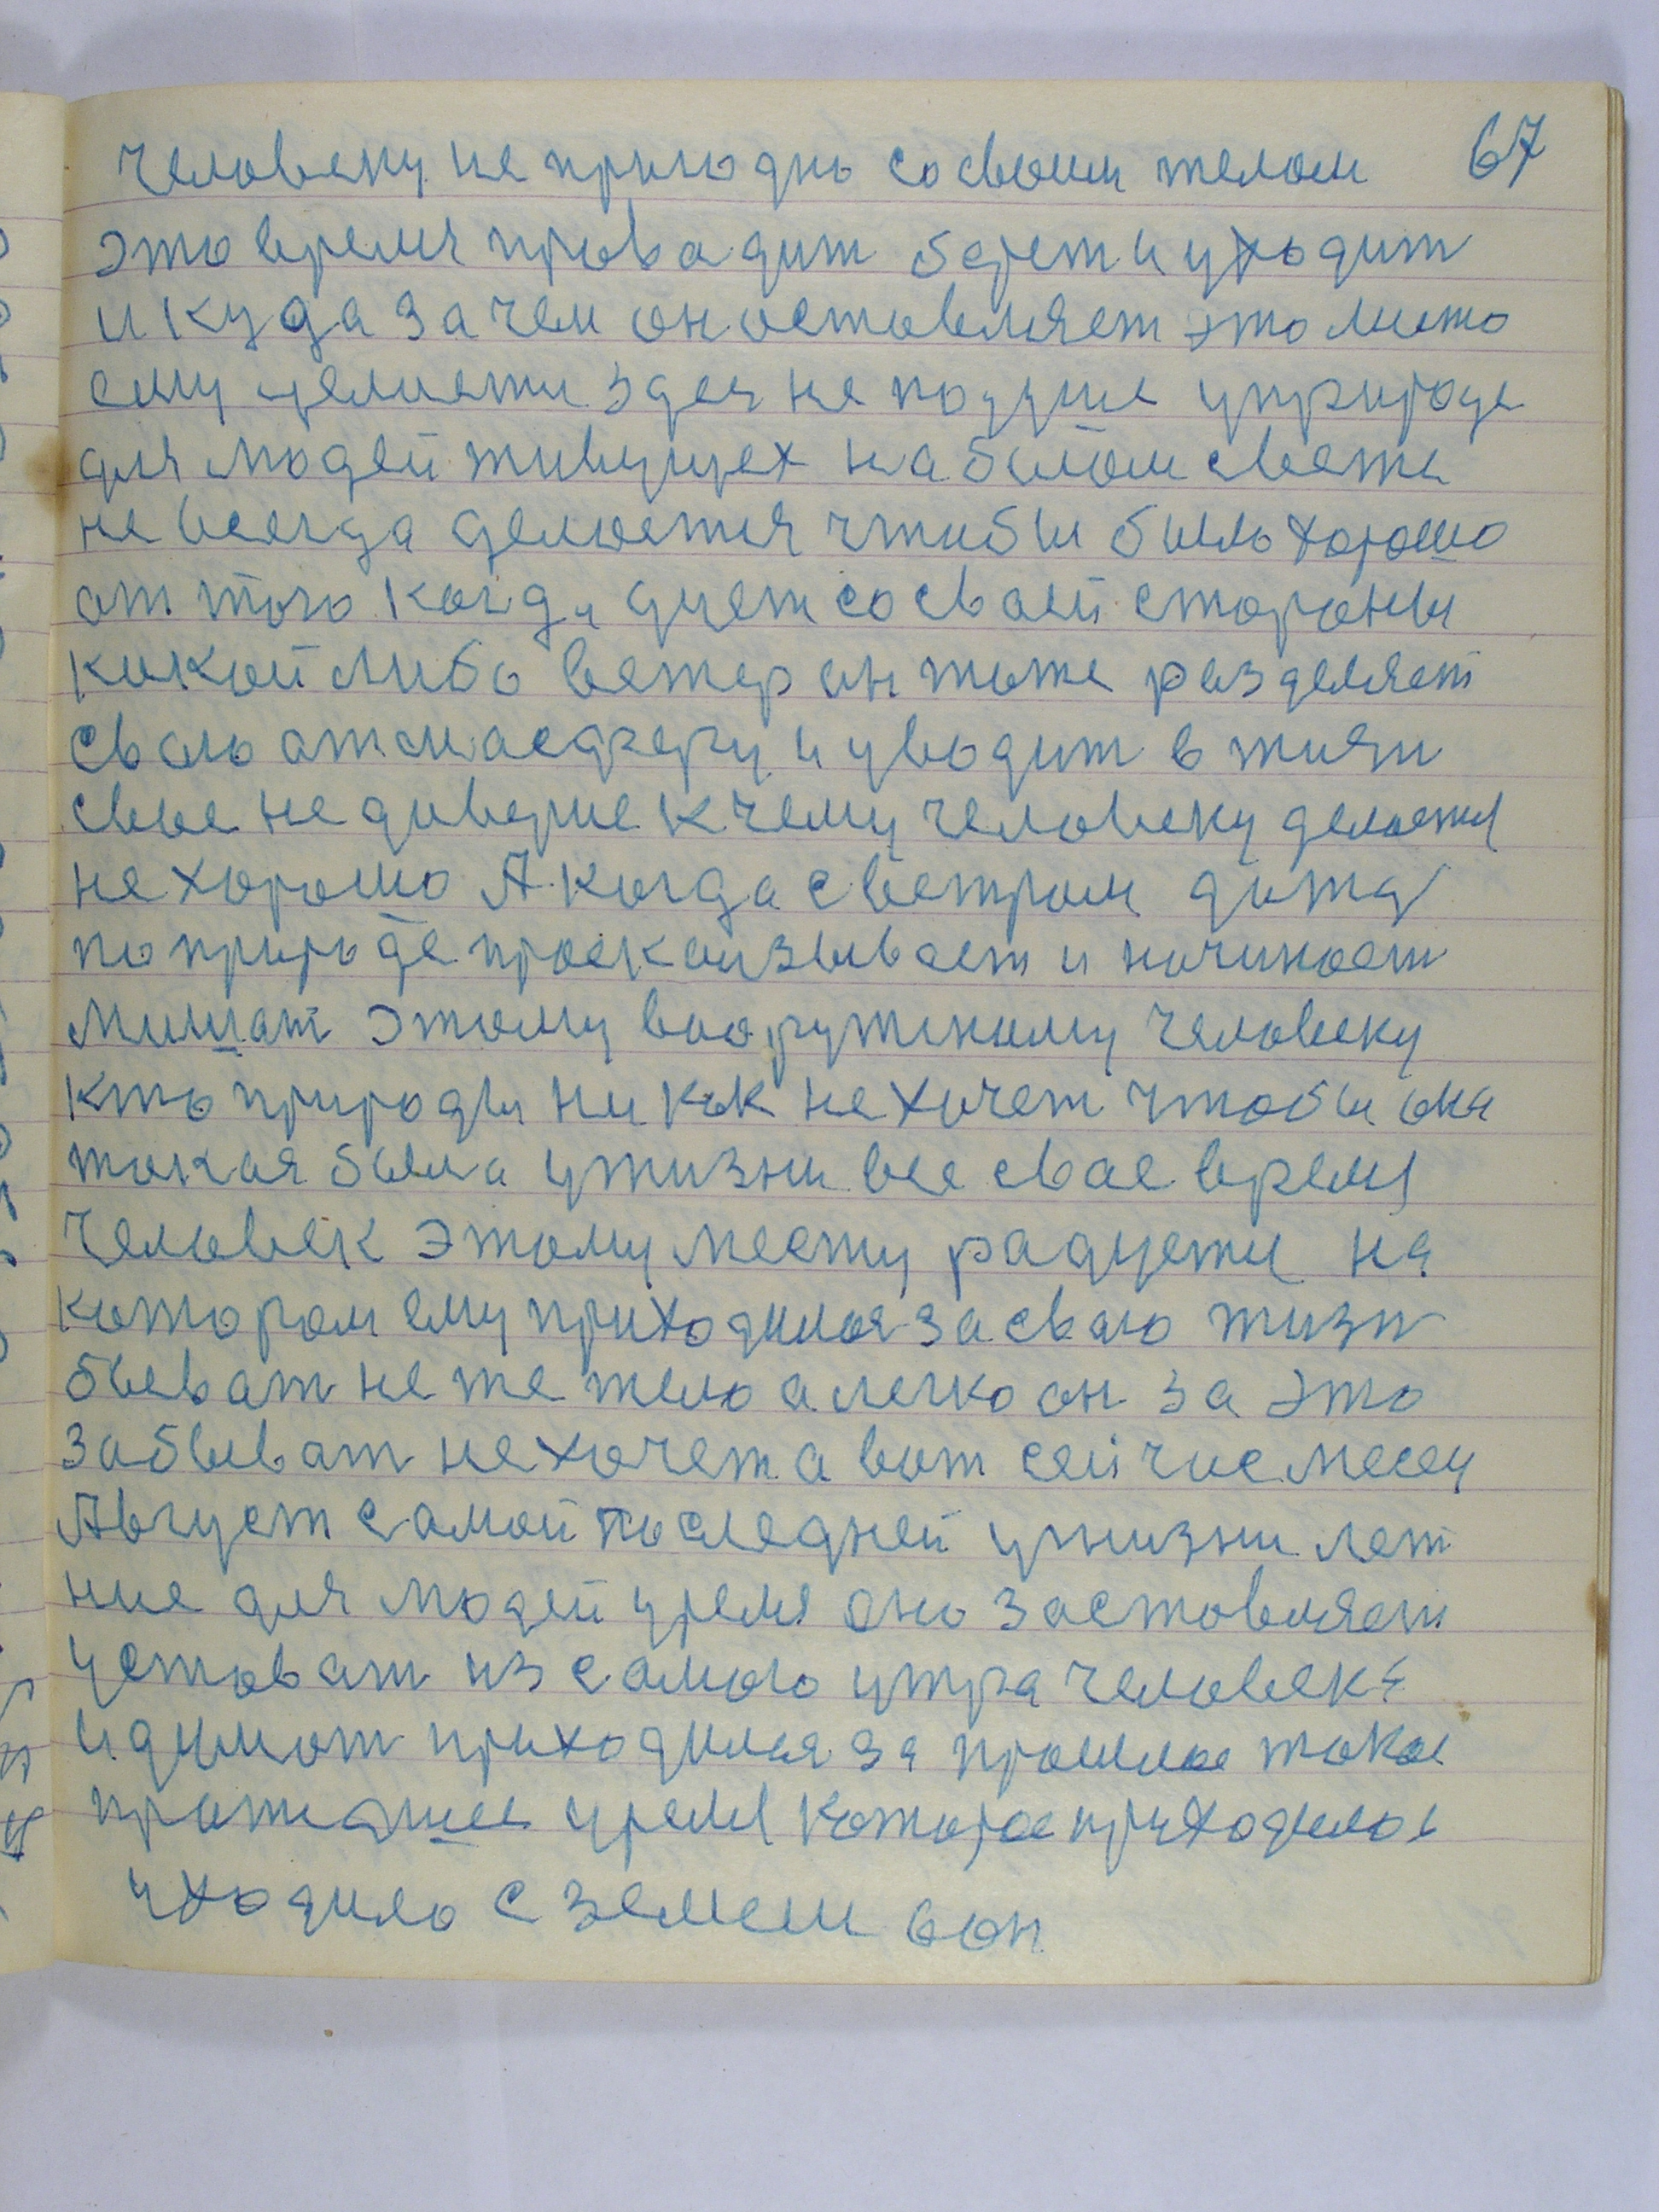 67
человеку не пригодно со своим телом
это время провадит берет и уходит
и куда зачем он оставляет это место
ему здес не у природе
для людей живущех на белом свете
не всегда делается чтобы было хорошо
от того когда дует со своей стороны
какой либо ветер он тоже разделяет
свою атмасферу и уводит в
свое недоверие к чему человеку делается
не хорошо А когда с ветром
по природе проскользывает и начинает
мишат этому вооружоному человеку
кто природы ни как не хочет чтобы она
такая была у жизни все свае время
Человек этому месту радуется на
котором ему приходилося за сваю жизн
быват не тежело а легко он за это
забыват не хочет а вот сейчас месец
Август самой последней у жизни лет
ние для людей уремя оно заставляет
устават из самого утра человека
и думат приходилося за прошлое такое
уремя которое приходило и
уходило с землеи вон